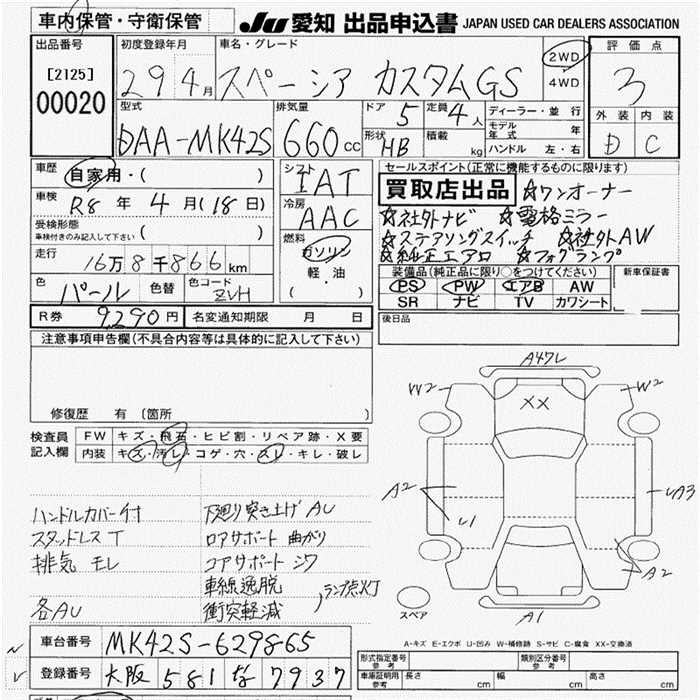 車内保管・守衛保管
JU 愛知 出品申込書 JAPAN USED CAR DEALERS ASSOCIATION
出品番号
[2125]
00020
初度登録年月
29 4月
車名・グレード
スペーシア カスタムGS
2WD
4WD
評価点
3
外装 内装
D C
型式
DAA-MK42S
排気量
660cc
ドア 5
定員 4人
形状 HB
積載 kg
ディーラー・並行
モデル年式 年
ハンドル 左・右
車歴
自家用・( )
車検
R8 年 4 月(18日)
受検形態
車検付きのみ記入して下さい ( )
走行
16万8千866km
色 パール 色替 色コード ZVH
シフト
IAT
冷房
AAC
燃料
ガソリン
軽油
( )
セールスポイント(正常に機能するものに限ります)
買取店出品 ☆ワンオーナー
☆社外ナビ ☆電格ミラー
☆ステアリングスイッチ ☆社外AW
☆純正エアロ ☆フォグランプ
装備品(純正品に限り○をつけてください)
PS PW エアB AW
SR ナビ TV カワシート
新車保証書
後日品
R券 9,290円 名変通知期限 月 日
注意事項申告欄(不具合内容等は具体的に記入して下さい)
修復歴 有 [箇所 ]
検査員記入欄
FW キズ・飛石・ヒビ割・リペア跡・X要
内装 キズ・汚レ・コゲ・穴・スレ・キレ・破レ
ハンドルカバー付
スタッドレスT
排気モレ
各AU
下廻り突き上げ AU
ロアサポート 曲がり
コアサポート シワ
車線逸脱
衝突軽減
ランプ点灯
A47L
W2
W2
XX
A2
U1
UA3
A2
A1
スペア
A-キズ E-エクボ U-凹み W-補修跡 S-サビ C-腐食 XX-交換済
車台番号 MK42S-629865
登録番号 大阪 581 な 7937
形式指定番号 参考
類別区分番号 参考
車庫証明用 参考 長さ cm 幅 cm 高さ cm